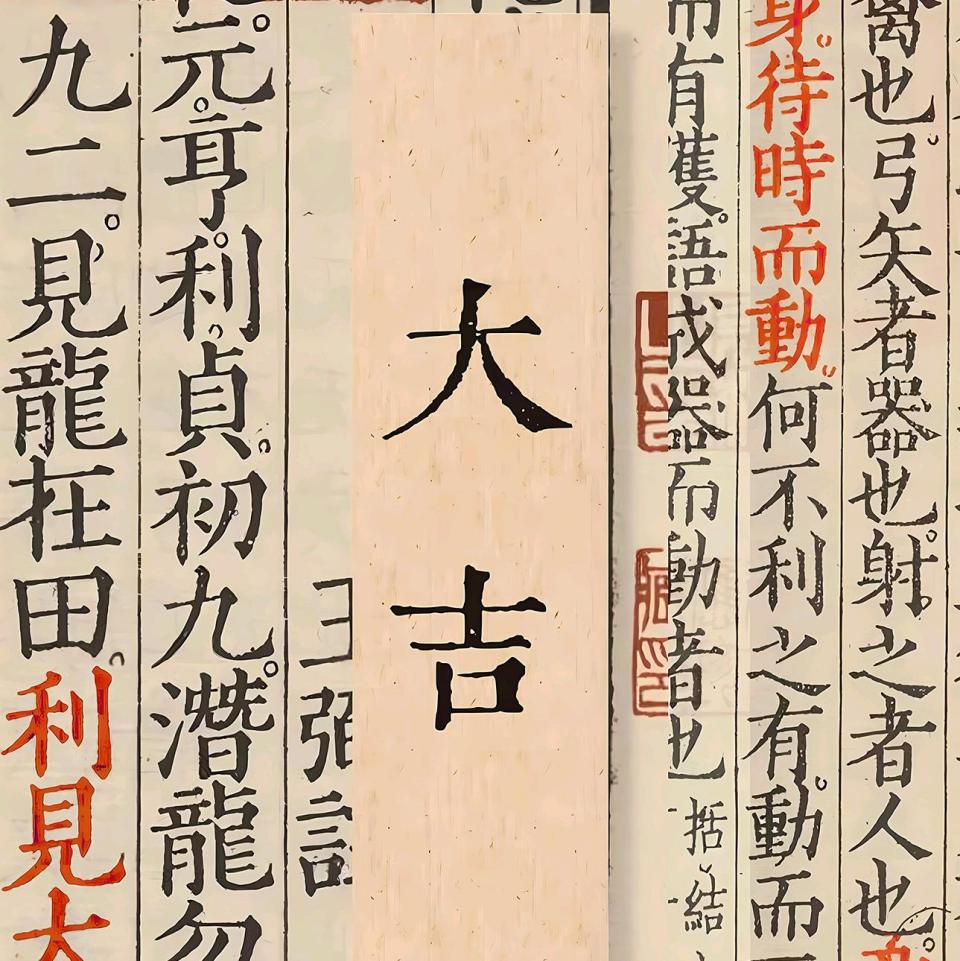 禽也。弓矢者器也。射之者人也。
身。待時而動。何不利之有。動而
而有獲。語成器而動者也括結
大吉
王弼註
元。亨。利。貞。初九。潛龍勿
九二。見龍在田。利見大